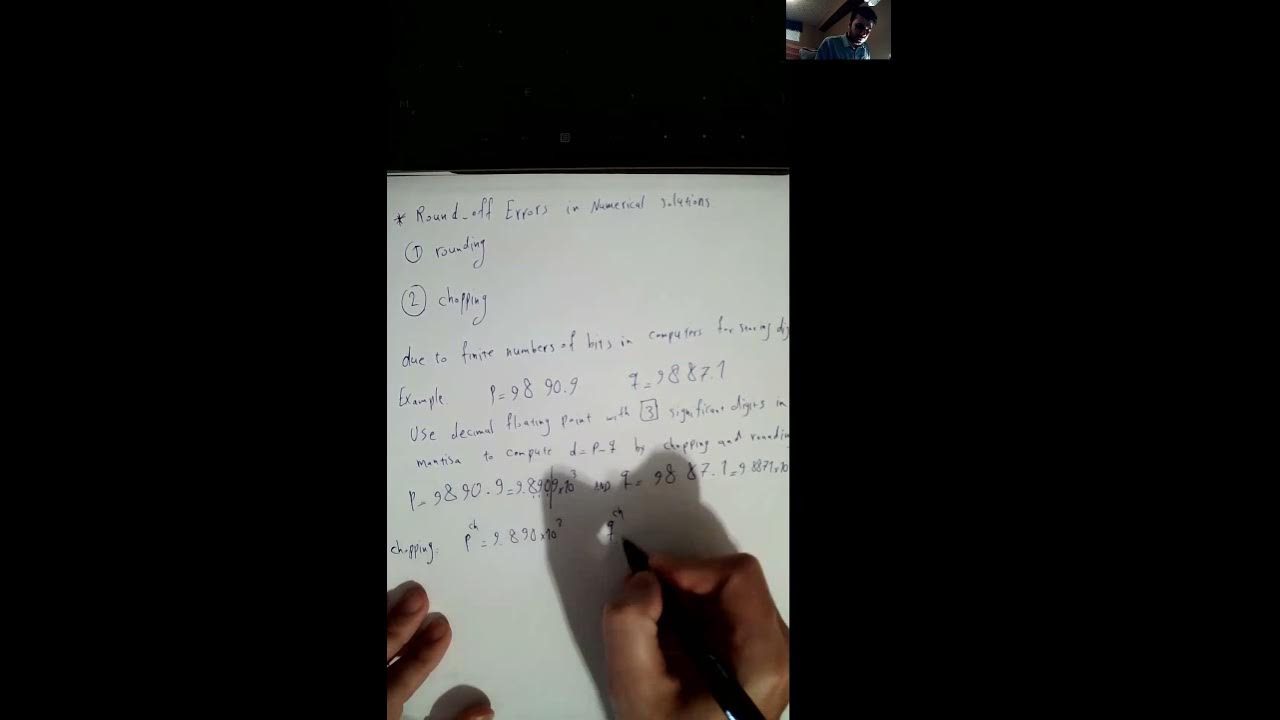 * Round-off Errors in Numerical solutions
① rounding
② chopping
due to finite numbers of bits in computers for storing dig
Example: P=9890.9 q=9887.1
Use decimal floating point with 3 significant digits in
mantisa to compute d=P-q by chopping and roundin
P=9890.9=9.8909x10^3 AND q=9887.1=9.8871x10
chopping: P^ch=9.890x10^3 q^ch